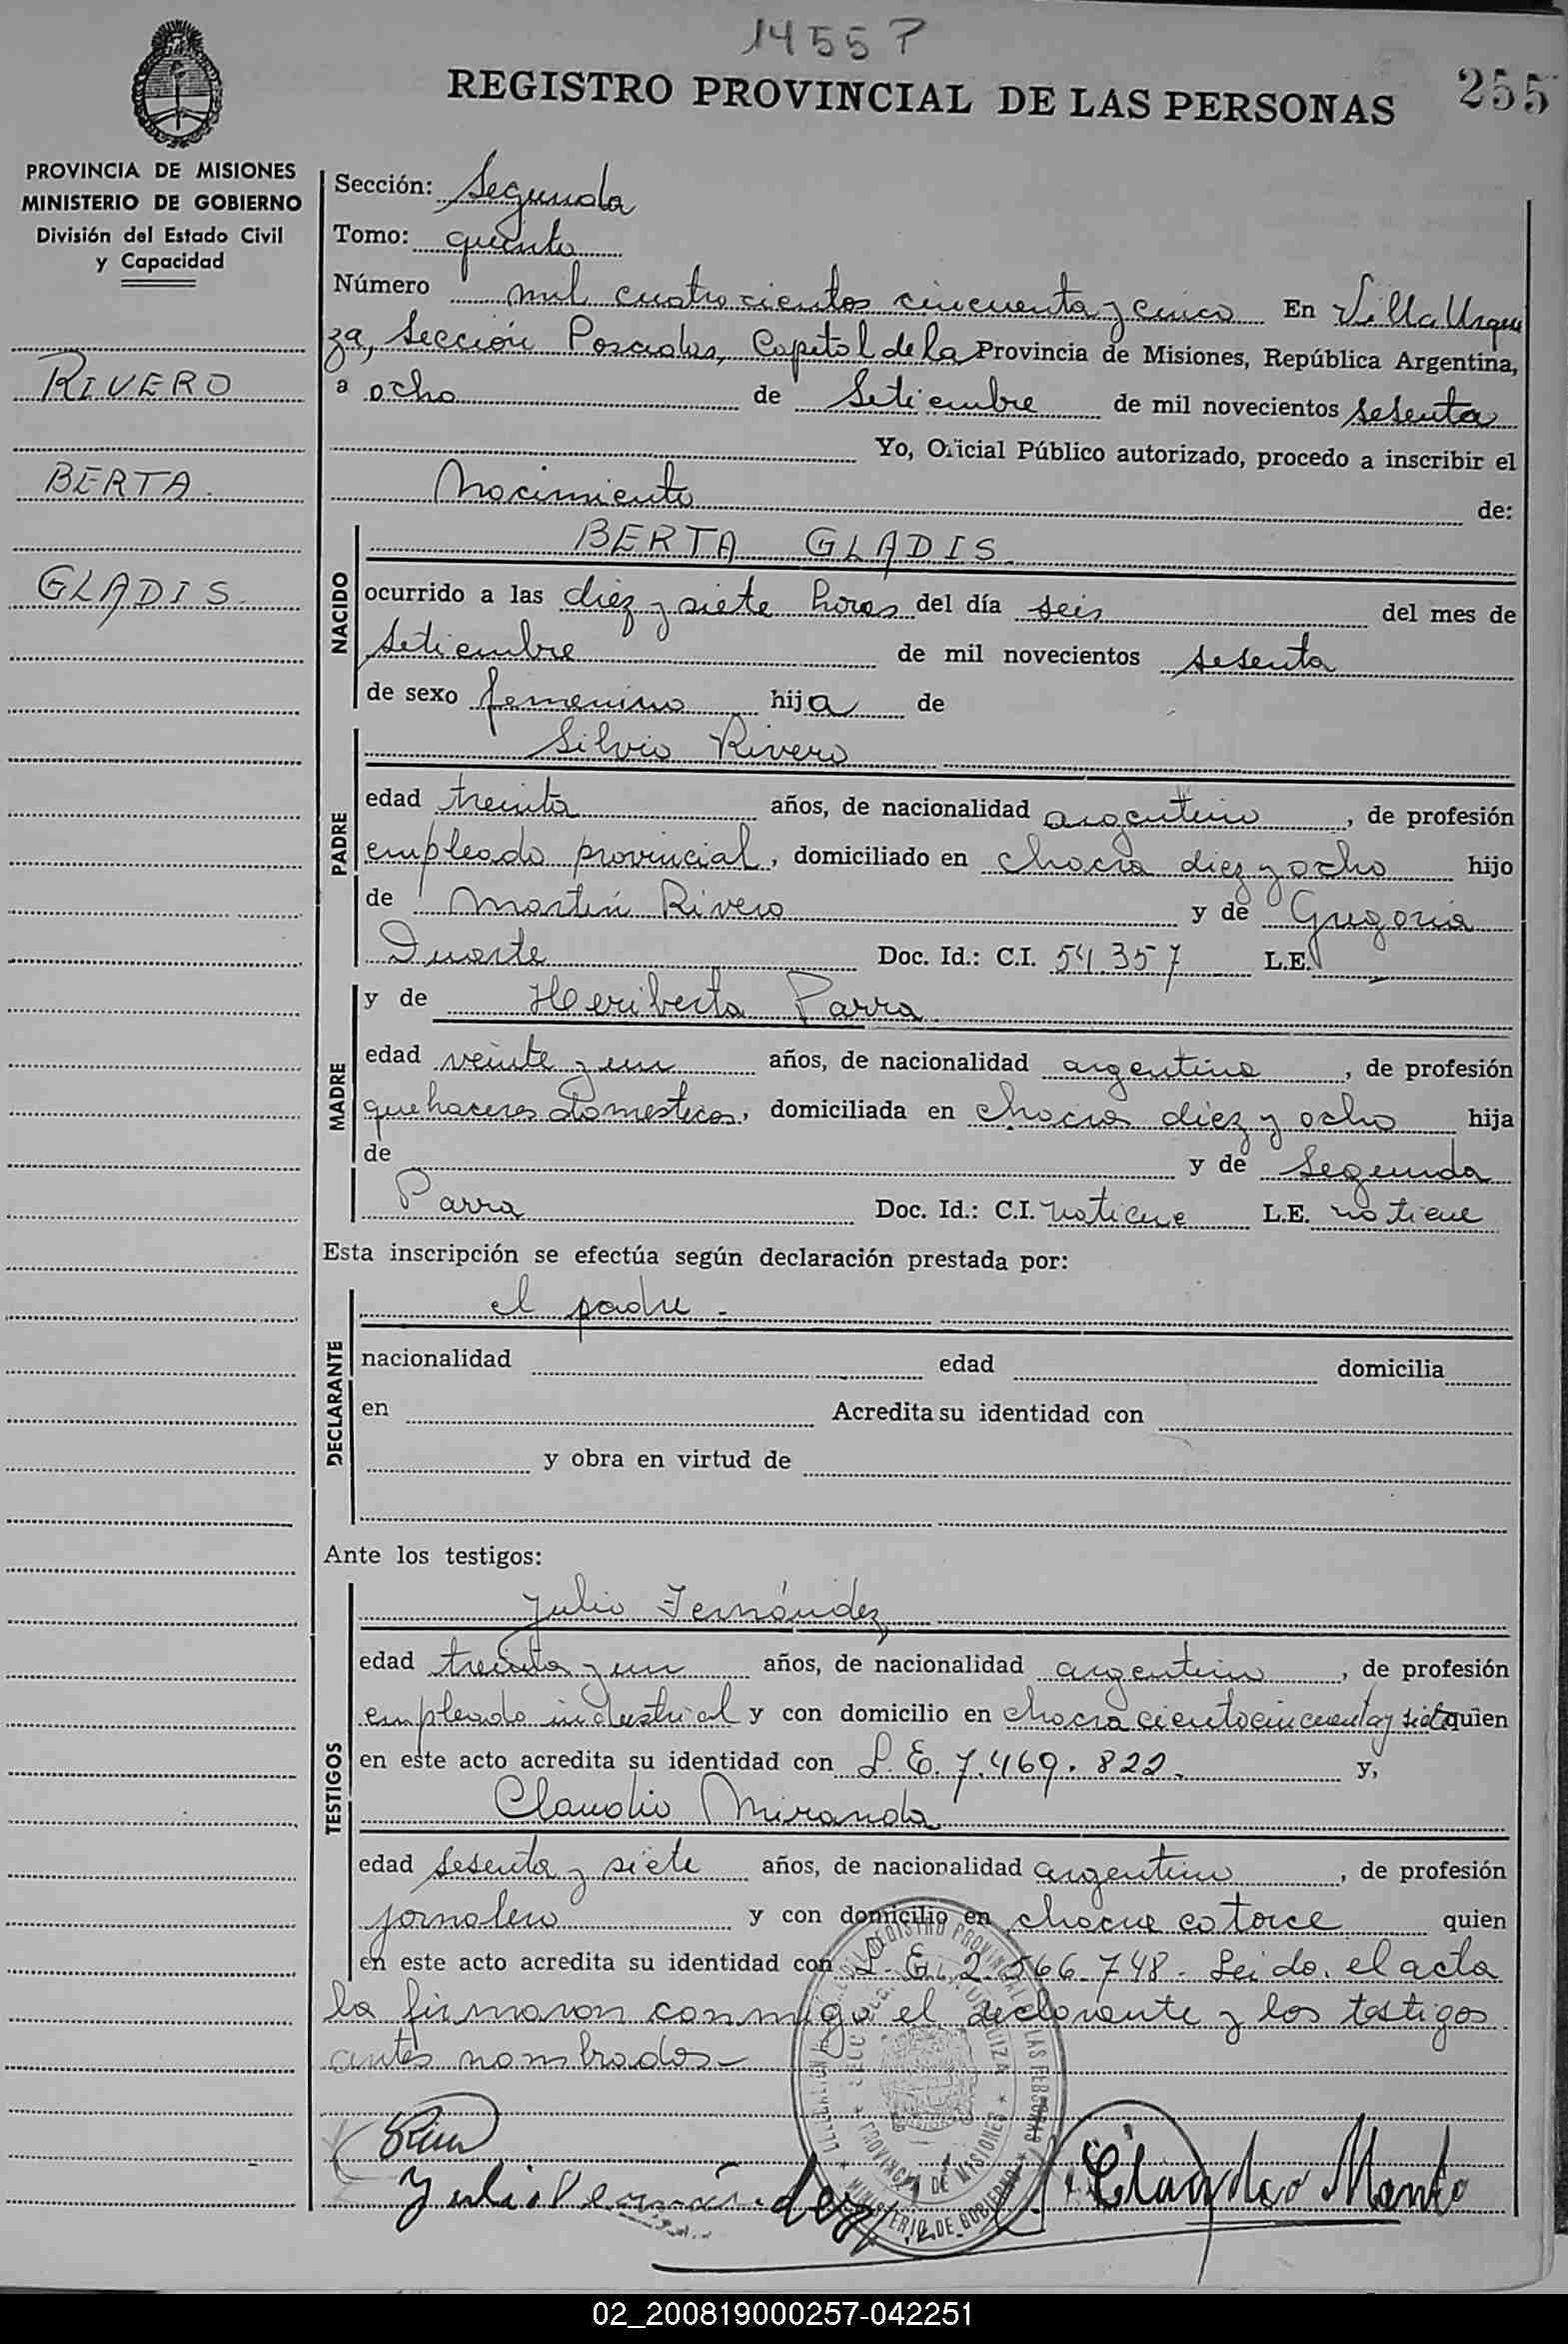 1455 P
REGISTRO PROVINCIAL DE LAS PERSONAS
255
PROVINCIA DE MISIONES
MINISTERIO DE GOBIERNO
División del Estado Civil
y Capacidad
RIVERO
BERTA
GLADIS
Sección: Segunda
Tomo: quinto
Número mil cuatrocientos cincuenta y cinco En Villa Urqui
za, Sección Posadas, Capital de la Provincia de Misiones, República Argentina,
a ocho de Setiembre de mil novecientos sesenta
Yo, Oficial Público autorizado, procedo a inscribir el
Nacimiento de:
NACIDO
BERTA GLADIS
ocurrido a las diez y siete horas del día seis del mes de
setiembre de mil novecientos sesenta
de sexo femenino hija de
PADRE
Silvio Rivero
edad treinta años, de nacionalidad argentino, de profesión
empleado provincial, domiciliado en chacra diez y ocho hijo
de Martín Rivero y de Gregoria
Duarte Doc. Id.: C.I. 54.357 L.E.
MADRE
y de Heriberta Parra
edad veinte y un años, de nacionalidad argentina, de profesión
quehaceres domesticos, domiciliada en chacra diez y ocho hija
de y de Segunda
Parra Doc. Id.: C.I. no tiene L.E. no tiene
Esta inscripción se efectúa según declaración prestada por:
DECLARANTE
el padre -
nacionalidad edad domicilia
en Acredita su identidad con
y obra en virtud de
Ante los testigos:
TESTIGOS
Julio Fernández
edad treinta y un años, de nacionalidad argentino, de profesión
empleado industrial y con domicilio en chacra ciento cincuenta y siete quien
en este acto acredita su identidad con L. E. 7.469.822. y,
Claudio Miranda
edad sesenta y siete años, de nacionalidad argentino, de profesión
jornalero y con domicilio en chacra catorce quien
en este acto acredita su identidad con L. E. 2.566.748 - Leido el acta
la firmaron conmigo el declarante y los testigos
antes nombrados -
REGISTRO PROVINCIAL DE LAS PERSONAS
MINISTERIO DE GOBIERNO
URQUIZA
PROVINCIA DE MISIONES
Julio Fernández
02_200819000257-042251